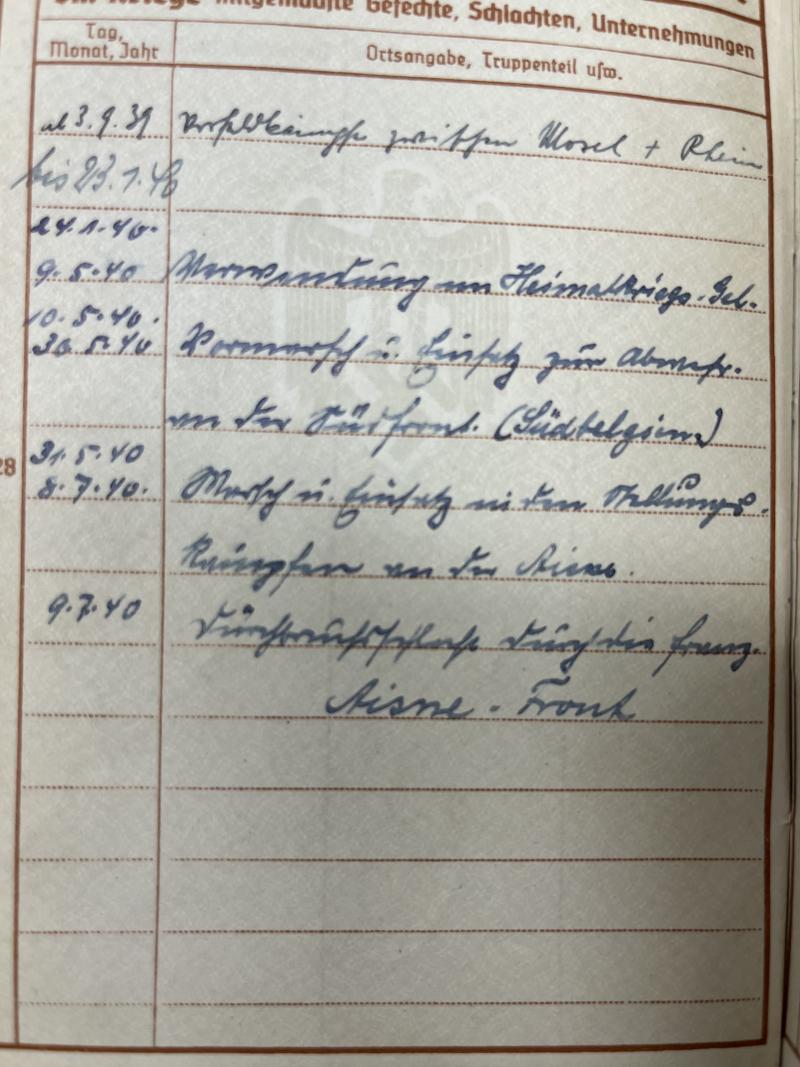 Im Kriege mitgemachte Gefechte, Schlachten, Unternehmungen
Tag,
Monat, Jahr
Ortsangabe, Truppenteil usw.
ab 3.9.39 Vorfeldkämpfe zwischen Mosel + Rhein
bis 23.1.40
24.1.40.
9.5.40 Verwendung im Heimatkriegs-Geb.
10.5.40.
30.5.40 Vormarsch u. Einsatz zur Abwehr.
an der Südfront. (Südbelgien)
31.5.40
28
8.7.40. Marsch u. Einsatz in den Stellungs-
kämpfen an der Aisne.
9.7.40 Durchbruchsschlacht durch die franz.
Aisne-Front